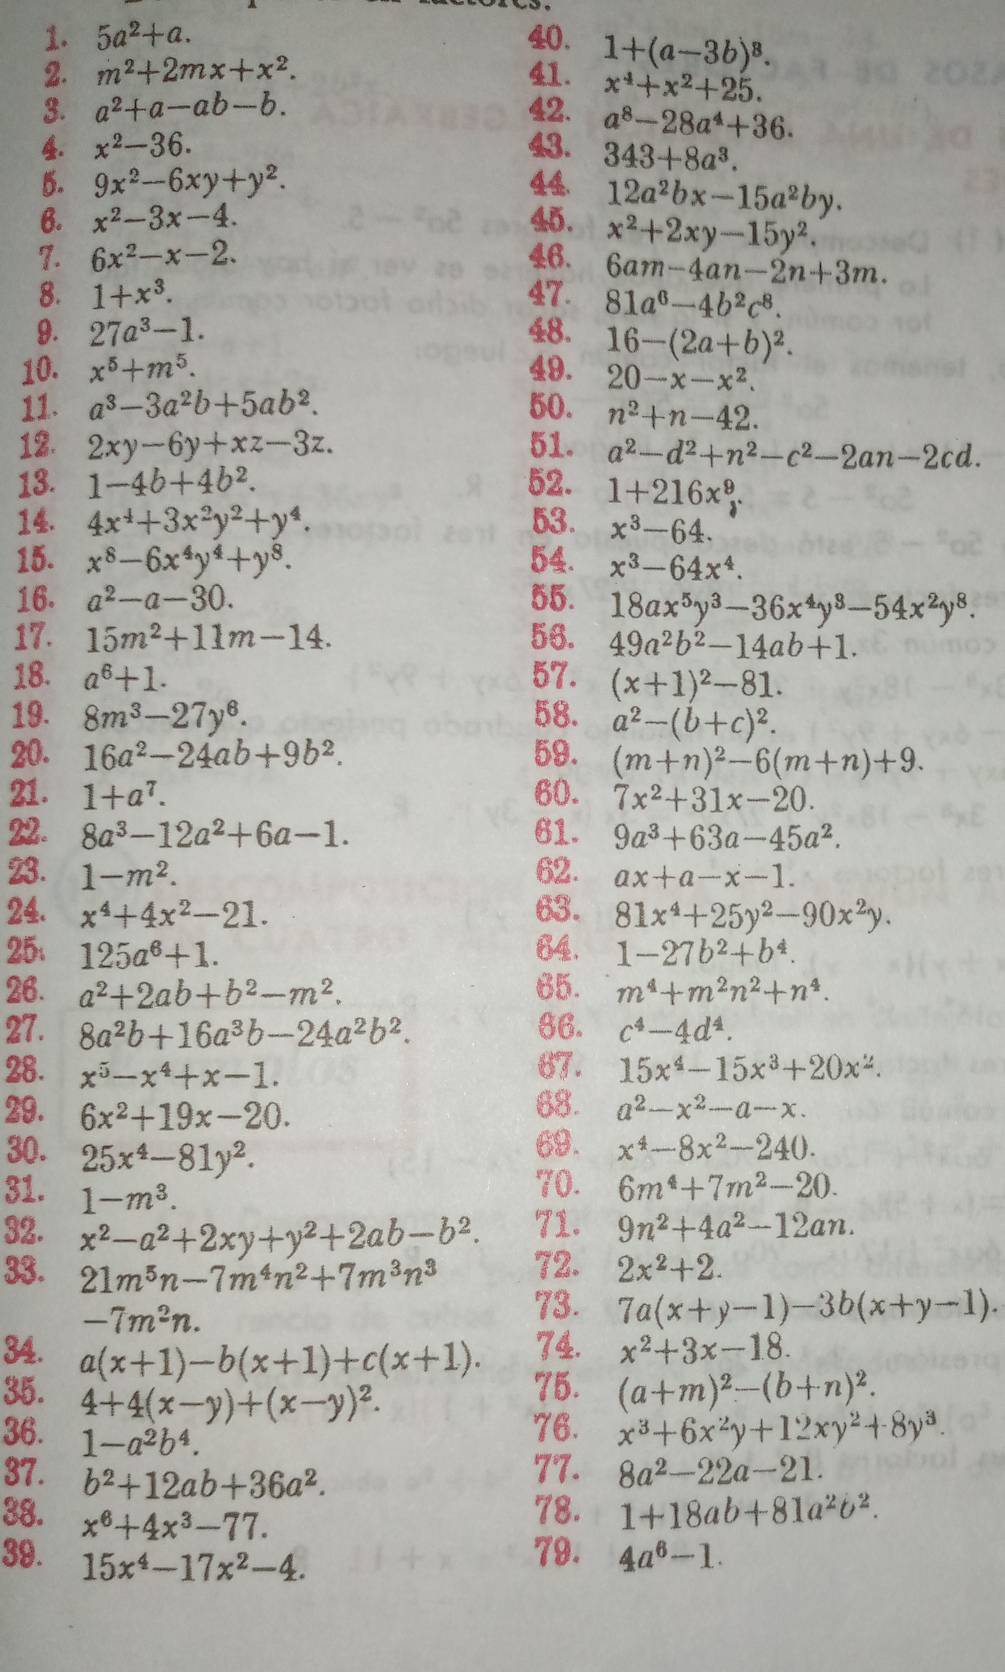 en factores.
1. 5a²+a.
2. m²+2mx+x².
3. a²+a−ab−b.
4. x²−36.
5. 9x²−6xy+y².
6. x²−3x−4.
7. 6x²−x−2.
8. 1+x³.
9. 27a³−1.
10. x⁵+m⁵.
11. a³−3a²b+5ab².
12. 2xy−6y+xz−3z.
13. 1−4b+4b².
14. 4x⁴+3x²y²+y⁴.
15. x⁸−6x⁴y⁴+y⁸.
16. a²−a−30.
17. 15m²+11m−14.
18. a⁶+1.
19. 8m³−27y⁶.
20. 16a²−24ab+9b².
21. 1+a⁷.
22. 8a³−12a²+6a−1.
23. 1−m².
24. x⁴+4x²−21.
25. 125a⁶+1.
26. a²+2ab+b²−m².
27. 8a²b+16a³b−24a²b².
28. x⁵−x⁴+x−1.
29. 6x²+19x−20.
30. 25x⁴−81y².
31. 1−m³.
32. x²−a²+2xy+y²+2ab−b².
33. 21m⁵n−7m⁴n²+7m³n³
−7m²n.
34. a(x+1)−b(x+1)+c(x+1).
35. 4+4(x−y)+(x−y)².
36. 1−a²b⁴.
37. b²+12ab+36a².
38. x⁶+4x³−77.
39. 15x⁴−17x²−4.
40. 1+(a−3b)³.
41. x⁴+x²+25.
42. a⁸−28a⁴+36.
43. 343+8a³.
44. 12a²bx−15a²by.
45. x²+2xy−15y².
46. 6am−4an−2n+3m.
47. 81a⁶−4b²c⁸.
48. 16−(2a+b)².
49. 20−x−x².
50. n²+n−42.
51. a²−d²+n²−c²−2an−2cd.
52. 1+216x⁹.
53. x³−64.
54. x³−64x⁴.
55. 18ax⁵y³−36x⁴y³−54x²y⁸.
56. 49a²b²−14ab+1.
57. (x+1)²−81.
58. a²−(b+c)².
59. (m+n)²−6(m+n)+9.
60. 7x²+31x−20.
61. 9a³+63a−45a².
62. ax+a−x−1.
63. 81x⁴+25y²−90x²y.
64. 1−27b²+b⁴.
65. m⁴+m²n²+n⁴.
66. c⁴−4d⁴.
67. 15x⁴−15x³+20x².
68. a²−x²−a−x.
69. x⁴−8x²−240.
70. 6m⁴+7m²−20.
71. 9n²+4a²−12an.
72. 2x²+2.
73. 7a(x+y−1)−3b(x+y−1).
74. x²+3x−18.
75. (a+m)²−(b+n)².
76. x³+6x²y+12xy²+8y³.
77. 8a²−22a−21.
78. 1+18ab+81a²b².
79. 4a⁶−1.